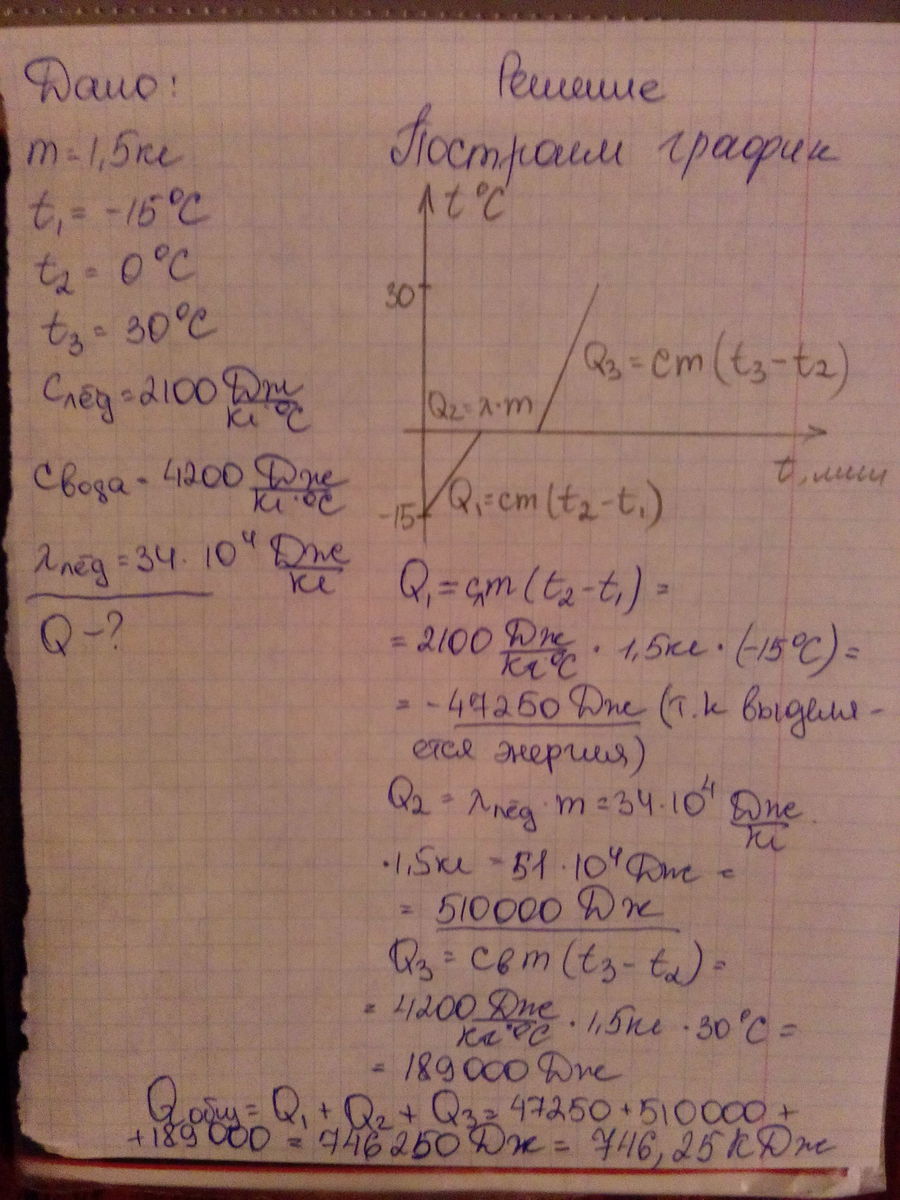 Дано:
m = 1,5 кг
t₁ = -15°C
t₂ = 0°C
t₃ = 30°C
Cлёд = 2100 Дж/кг·°C
Cвода = 4200 Дж/кг·°C
λлёд = 34·10⁴ Дж/кг
Q - ?
Решение
Построим график
t°C
30
Q₃ = cm(t₃ - t₂)
Q₂ = λ·m
t, мин
-15
Q₁ = cm(t₂ - t₁)
Q₁ = cлm(t₂ - t₁) =
= 2100 Дж/кг°C · 1,5 кг · (-15°C) =
= -47250 Дж (т.к выделя-
ется энергия)
Q₂ = λлёд · m = 34·10⁴ Дж/кг ·
· 1,5 кг = 51·10⁴ Дж =
= 510000 Дж
Q₃ = cвm(t₃ - t₂) =
= 4200 Дж/кг·°C · 1,5 кг · 30°C =
= 189000 Дж
Qобщ = Q₁ + Q₂ + Q₃ = 47250 + 510000 +
+ 189000 = 746250 Дж = 746,25 кДж